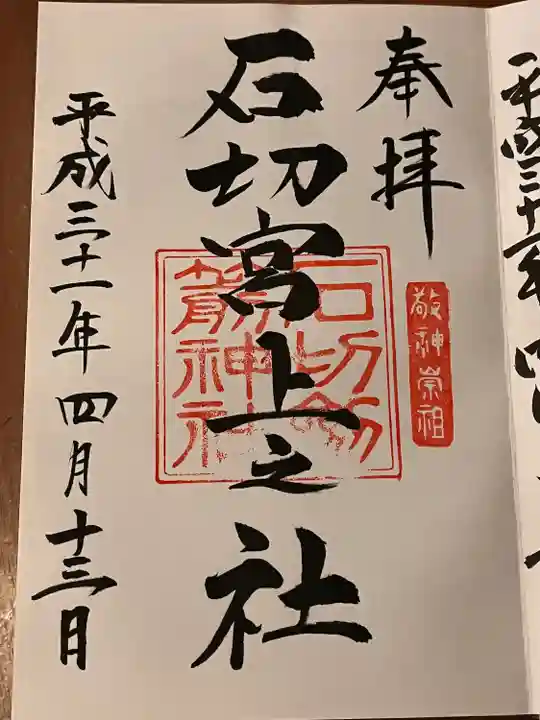 奉拝
敬神崇祖
石切宮上之社
石切劔
箭神社
平成三十一年四月十三日
平成三十一年四